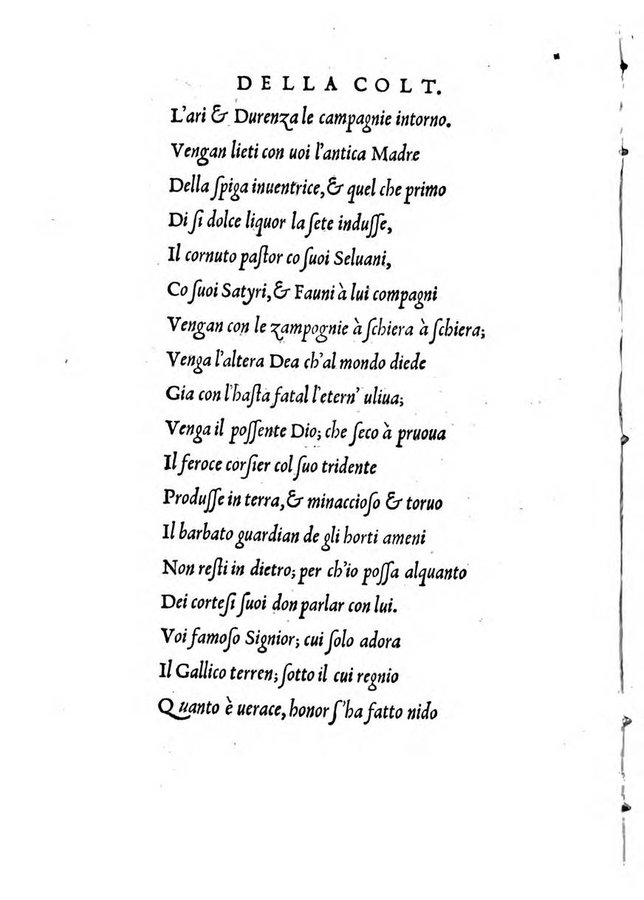 DELLA COLT.
L'ari & Durenza le campagnie intorno.
Vengan lieti con uoi l'antica Madre
Della ſpiga inuentrice, & quel che primo
Di ſi dolce liquor la ſete induſſe,
Il cornuto paſtor co ſuoi Seluani,
Co ſuoi Satyri, & Fauni à lui compagni
Vengan con le zampognie à ſchiera à ſchiera;
Venga l'altera Dea ch'al mondo diede
Gia con l'haſta fatal l'etern' uliua;
Venga il poſſente Dio; che ſeco à pruoua
Il feroce corſier col ſuo tridente
Produſſe in terra, & minaccioſo & toruo
Il barbato guardian de gli horti ameni
Non reſti in dietro; per ch'io poſſa alquanto
Dei corteſi ſuoi don parlar con lui.
Voi famoſo Signior; cui ſolo adora
Il Gallico terren; ſotto il cui regnio
Quanto è uerace, honor ſ'ha fatto nido